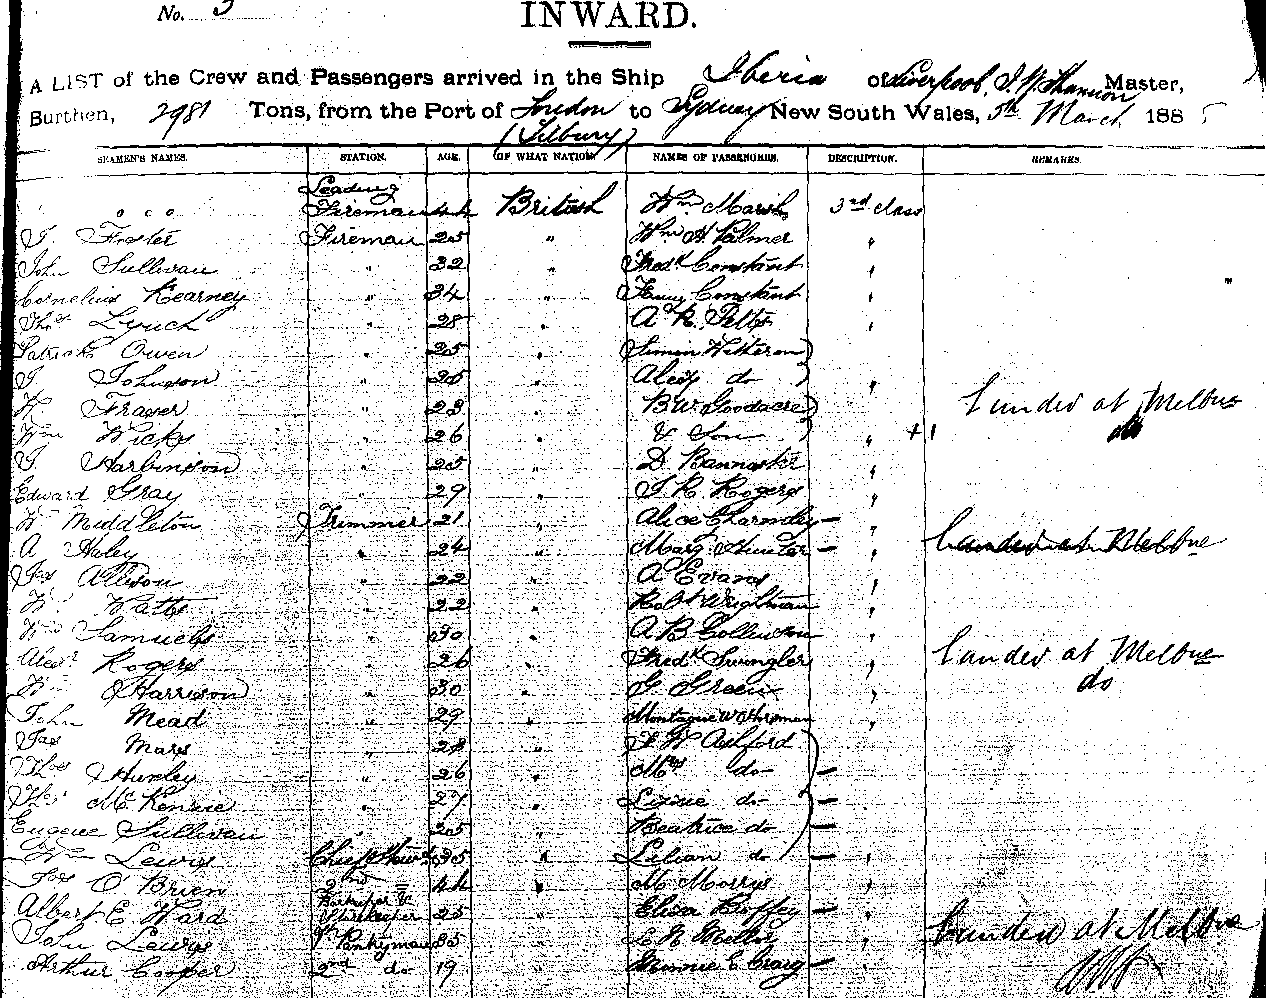 No. 3
INWARD.
A LIST of the Crew and Passengers arrived in the Ship Iberia of Liverpool, J. W. Shannon Master,
Burthen, 2981 Tons, from the Port of London to Sydney New South Wales, 5th March 1885
(Tilbury)
SEAMEN'S NAMES. STATION. AGE. OF WHAT NATION. NAMES OF PASSENGERS. DESCRIPTION. REMARKS.
Leading
Fireman 44 British Wm Marsh 3rd class
J. Foster Fireman 25 " Wm H Palmer "
John Sullivan " 32 " Fredk Constant "
Cornelius Kearney " 34 " Constant "
Thos Lynch " 28 " A "
Patrick Owen " 25 " Simon
J Johnson " " do "
W Fraser " 23 " B W Goodacre Landed at Melbne
Wm Hicks " 26 " & Son " + 1 do
J. Harbinson " 25 " D Bannaster "
Edward Gray " 29 " J R Rogers "
W Middleton Trimmer 21 " Alice — "
A Haley " 24 " Margt Hunter — " Landed at Melbne
Jas Allison " 22 " A Evans "
W. Watts " 22 " Robt Wrightman "
Wm Samuels " 30 " A B "
Alexr Rogers " 26 " Fredk Swingler " Landed at Melbne
Wm Harrison " 30 " G Green " do
John Mead " 29 " Montague W "
Jas Mars " 28 " W Ashford
Thos Hurley " 26 " Mrs do —
Thos McKenzie " 27 " Lizzie do —
Eugene Sullivan " 25 " Beatrice do —
Wm Lewis Chief 35 " Lilian do — "
Jos O'Brien 2nd " 44 " M Morrys "
Albert E. Ward Barkeeper & Storekeeper 25 " Eliza — Landed at Melbne
John Lewis Pantryman 35 " Mellor "
Arthur Cooper 2nd do 19 " Minnie E Craig — "